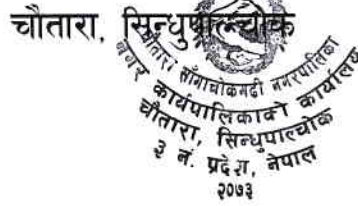 चौतारा, सिन्धुपाल्चोक
चौतारा, साँगाचोकगढी नगरपालिका
नगर कार्यपालिकाको कार्यालय
चौतारा, सिन्धुपाल्चोक
३ नं. प्रदेश, नेपाल
२०७३